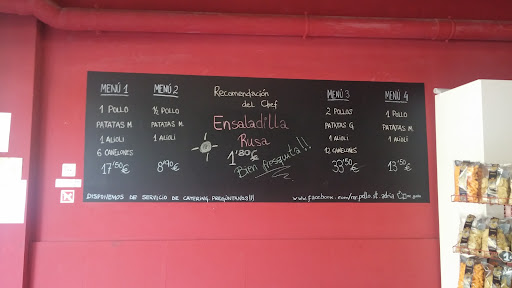 MENÚ 1
1 POLLO
PATATAS M.
1 ALIOLI
6 CANELONES
17'50€
MENÚ 2
½ POLLO
PATATAS M.
1 ALIOLI
8'90€
Recomendación
del Chef
Ensaladilla
Rusa
1'80€
Bien fresquita!!
MENÚ 3
2 POLLOS
PATATAS G.
1 ALIOLI
12 CANELONES
33'50€
MENÚ 4
1 POLLO
PATATAS M.
1 ALIOLI
13'50€
DISPONEMOS DE SERVICIO DE CATERING. PREGÚNTANOS!!!
www.facebook.com/mr.pollo.st.adria